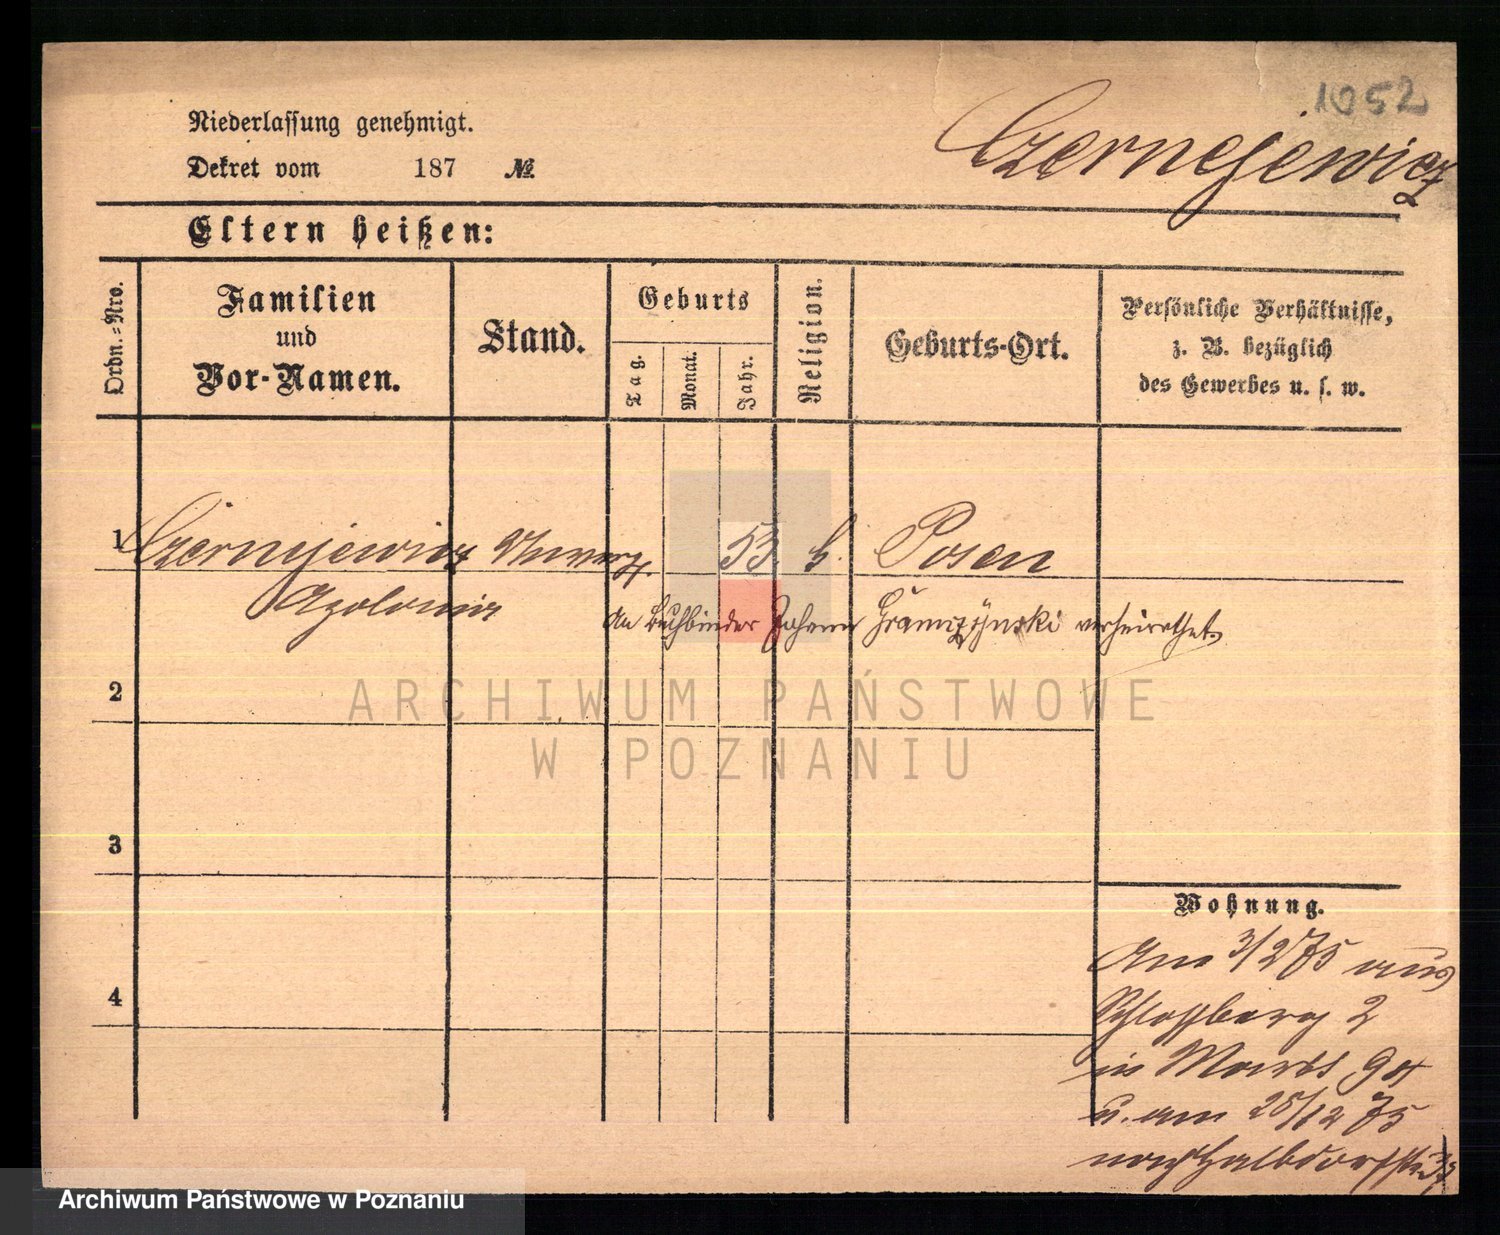 1052
Niederlassung genehmigt.
Czernejewicz
Dekret vom 187 №
Eltern heißen:
Ordn.-Nro.
Familien
und
Vor-Namen.
Stand.
Geburts
Tag.
Monat.
Jahr.
Religion.
Geburts-Ort.
Persönliche Verhältnisse,
z. B. bezüglich
des Gewerbes u. s. w.
1 Czernejewicz Unverh. 53. k. Posen
Apolonia
An Buchbinder Johann verheirathet.
2
ARCHIWUM PAŃSTWOWE
W POZNANIU
3
Wohnung.
Am 3/2 75 aus
Schloßberg 2
4
in Markt 94
u. am 28/12 75
nach Halbdorfstr.
Archiwum Państwowe w Poznaniu